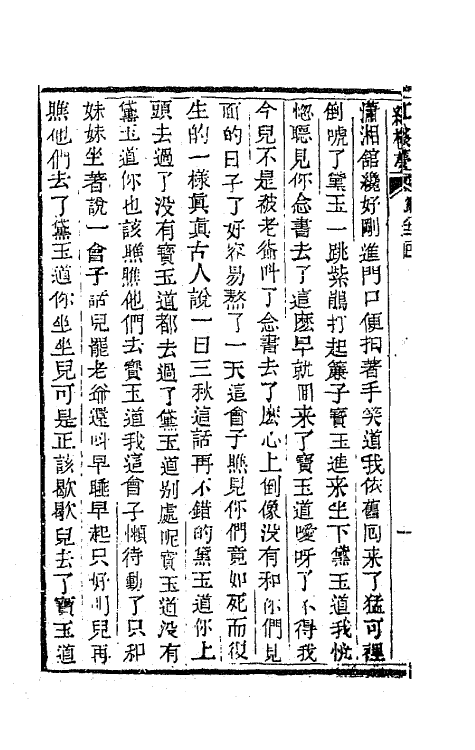 紅樓夢 第八十二回
瀟湘館纔好剛進門口便拍著手笑道我依舊回來了猛可裡
倒唬了黛玉一跳紫鵑打起簾子寶玉進來坐下黛玉道我恍
惚聽見你念書去了這麼早就回來了寶玉道噯呀了不得我
今兒不是被老爺叫了念書去了麼心上倒像沒有和你們見
面的日子了好容易熬了一天這會子瞧見你們竟如死而復
生的一樣真真古人說一日三秋這話再不錯的黛玉道你上
頭去過了沒有寶玉道都去過了黛玉道别處呢寶玉道沒有
黛玉道你也該瞧瞧他們去寶玉道我這會子懶待動了只和
妹妹坐著說一會子話兒罷老爺還叫早睡早起只好明兒再
瞧他們去了黛玉道你坐坐兒可是正該歇歇兒去了寶玉道
一